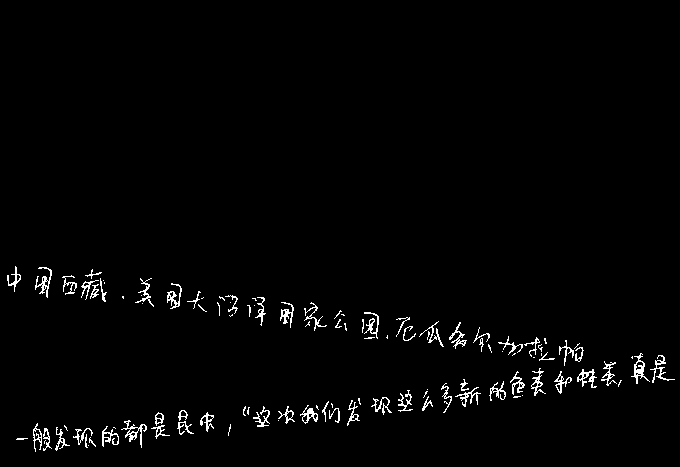 中国西藏、美国大沼泽国家公园、厄瓜多尔加拉帕
一般发现的都是昆虫，“这次我们发现这么多新的鱼类和蛙类，真是